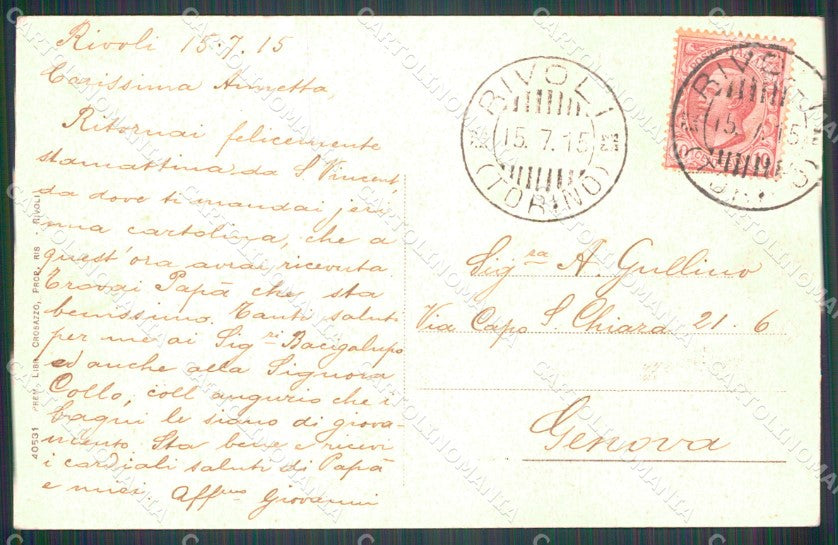 Rivoli 15.7.15
Carissima Annetta,
Ritornai felicemente
stamattina da S. Vincent,
da dove ti mandai jeri
una cartolina, che a
quest'ora avrai ricevuta
Trovai Papà che sta
benissimo. Tanti saluti
per me ai Sig.ri Bacigalupo
ed anche alla Signora
Collo, coll'augurio che i
bagni le siano di giova-
mento. Sta bene e ricevi
i cordiali saluti di Papà
e miei Aff.mo Giovanni
40531 PREM. LIBR. OROBAZZO, PROP. RIS. - RIVOLI
RIVOLI
15.7.15
(TORINO)
RIVOLI
15.7.15
(TORINO)
Sig.ra A. Gullino
Via Capo S. Chiara 21.6
Genova
CARTOLINOMANIA